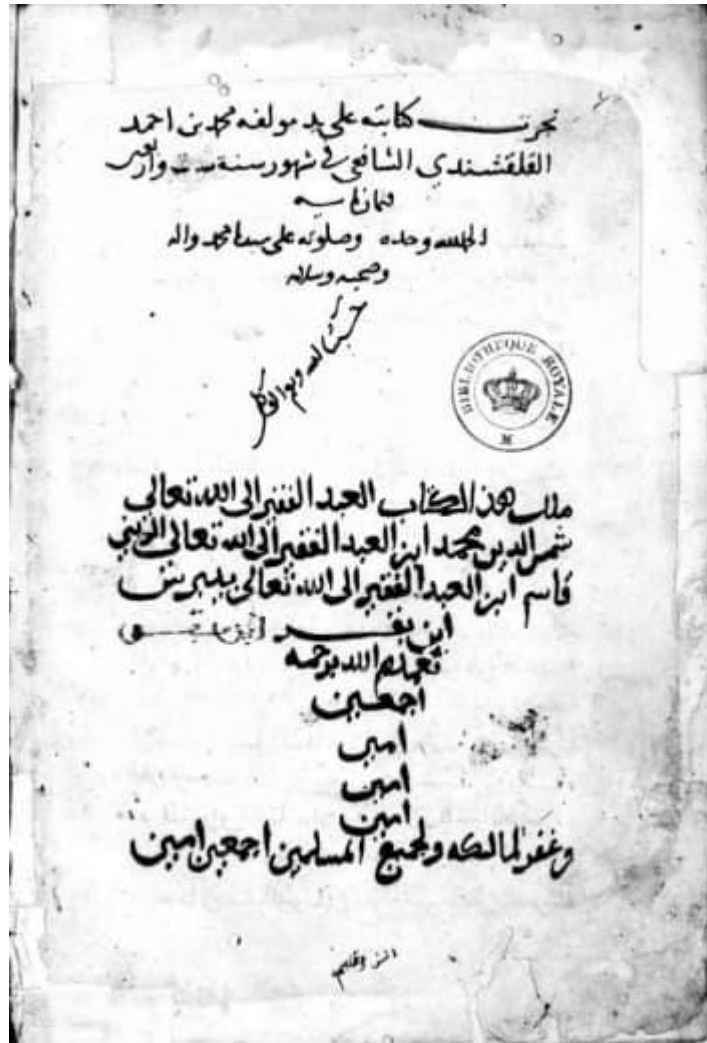 نجزت كتابته على يد مولفه محمد بن احمد
القلقشندي الشافعي في شهور سنة ست واربعين
وثمان مايه
الحمد لله وحده وصلوته على سيدنا محمد واله
وصحبه وسلامه
حسبنا الله ونعم الوكيل
BIBLIOTHEQUE ROYALE
ملك هذا الكتاب العبد الفقير الى الله تعالى
شمس الدين محمد ابن العبد الفقير الى الله تعالى الزيني
قاسم ابن العبد الفقير الى الله تعالى بيبرس
ابن بقر
تغمدهم الله برحمته
اجمعين
امين
امين
امين
وغفر لمالكه ولجميع المسلمين اجمعين امين